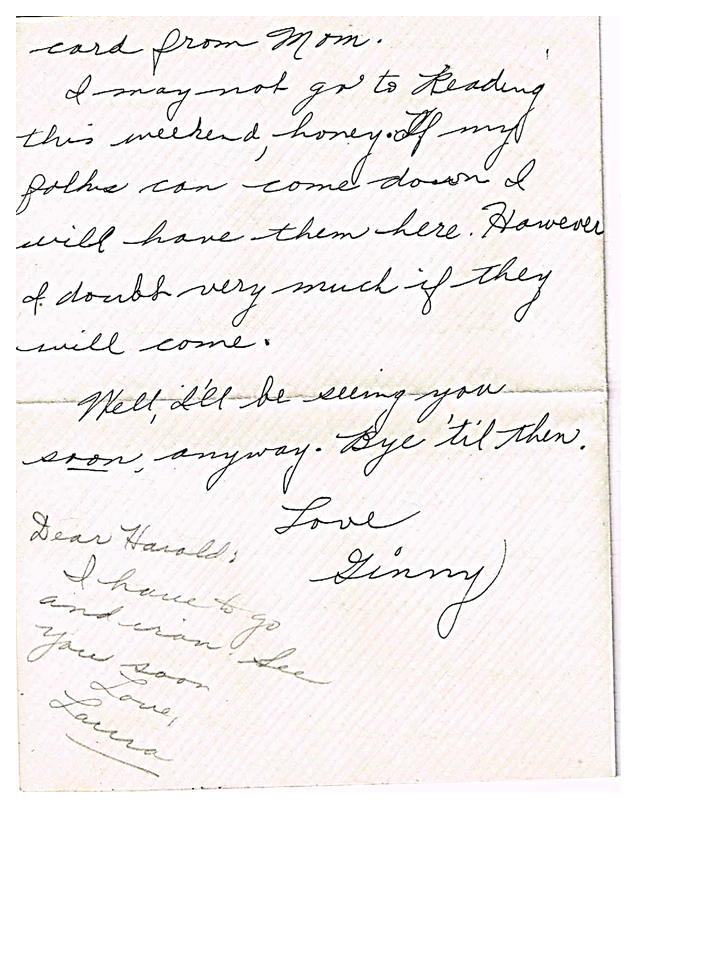 card from Mom.
I may not go to Reading
this weekend, honey. If my
folks can come down I
will have them here. However
I doubt very much if they
will come.
Well, I'll be seeing you
soon, anyway. Bye 'til then.
Love
Ginny
Dear Harold:
I have to go
and iron. See
you soon
Love,
Laura